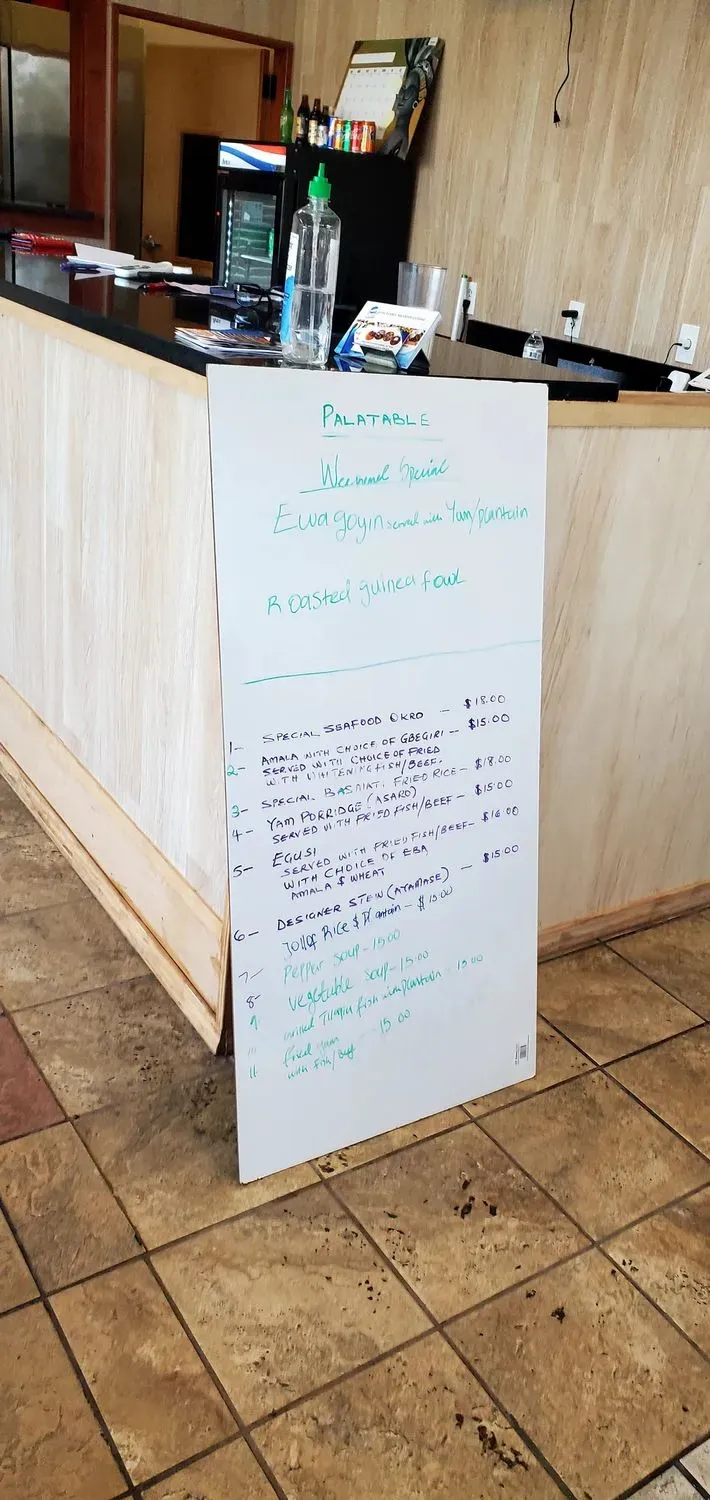 PALATABLE
Special
Ewagoyin served with Yam/plantain
Roasted guinea fowl
1- SPECIAL SEAFOOD OKRO - $18.00
2- AMALA WITH CHOICE OF GBEGIRI - $15.00
SERVED WITH CHOICE OF FRIED
WITH WHITENING FISH/BEEF.
3- SPECIAL BASMATI FRIED RICE - $18.00
4- YAM PORRIDGE (ASARO) - $15.00
SERVED WITH FRIED FISH/BEEF
5- EGUSI - $16.00
SERVED WITH FRIED FISH/BEEF
WITH CHOICE OF EBA
AMALA $ WHEAT
6- DESIGNER STEW (AYAMASE) - $15.00
7- Jollof Rice $ Plantain - $15.00
8- Pepper soup - 15.00
9 vegetable soup - 15.00
Tilapia fish with plantain - 15.00
11 fried yam 15 00
with fish/Beef